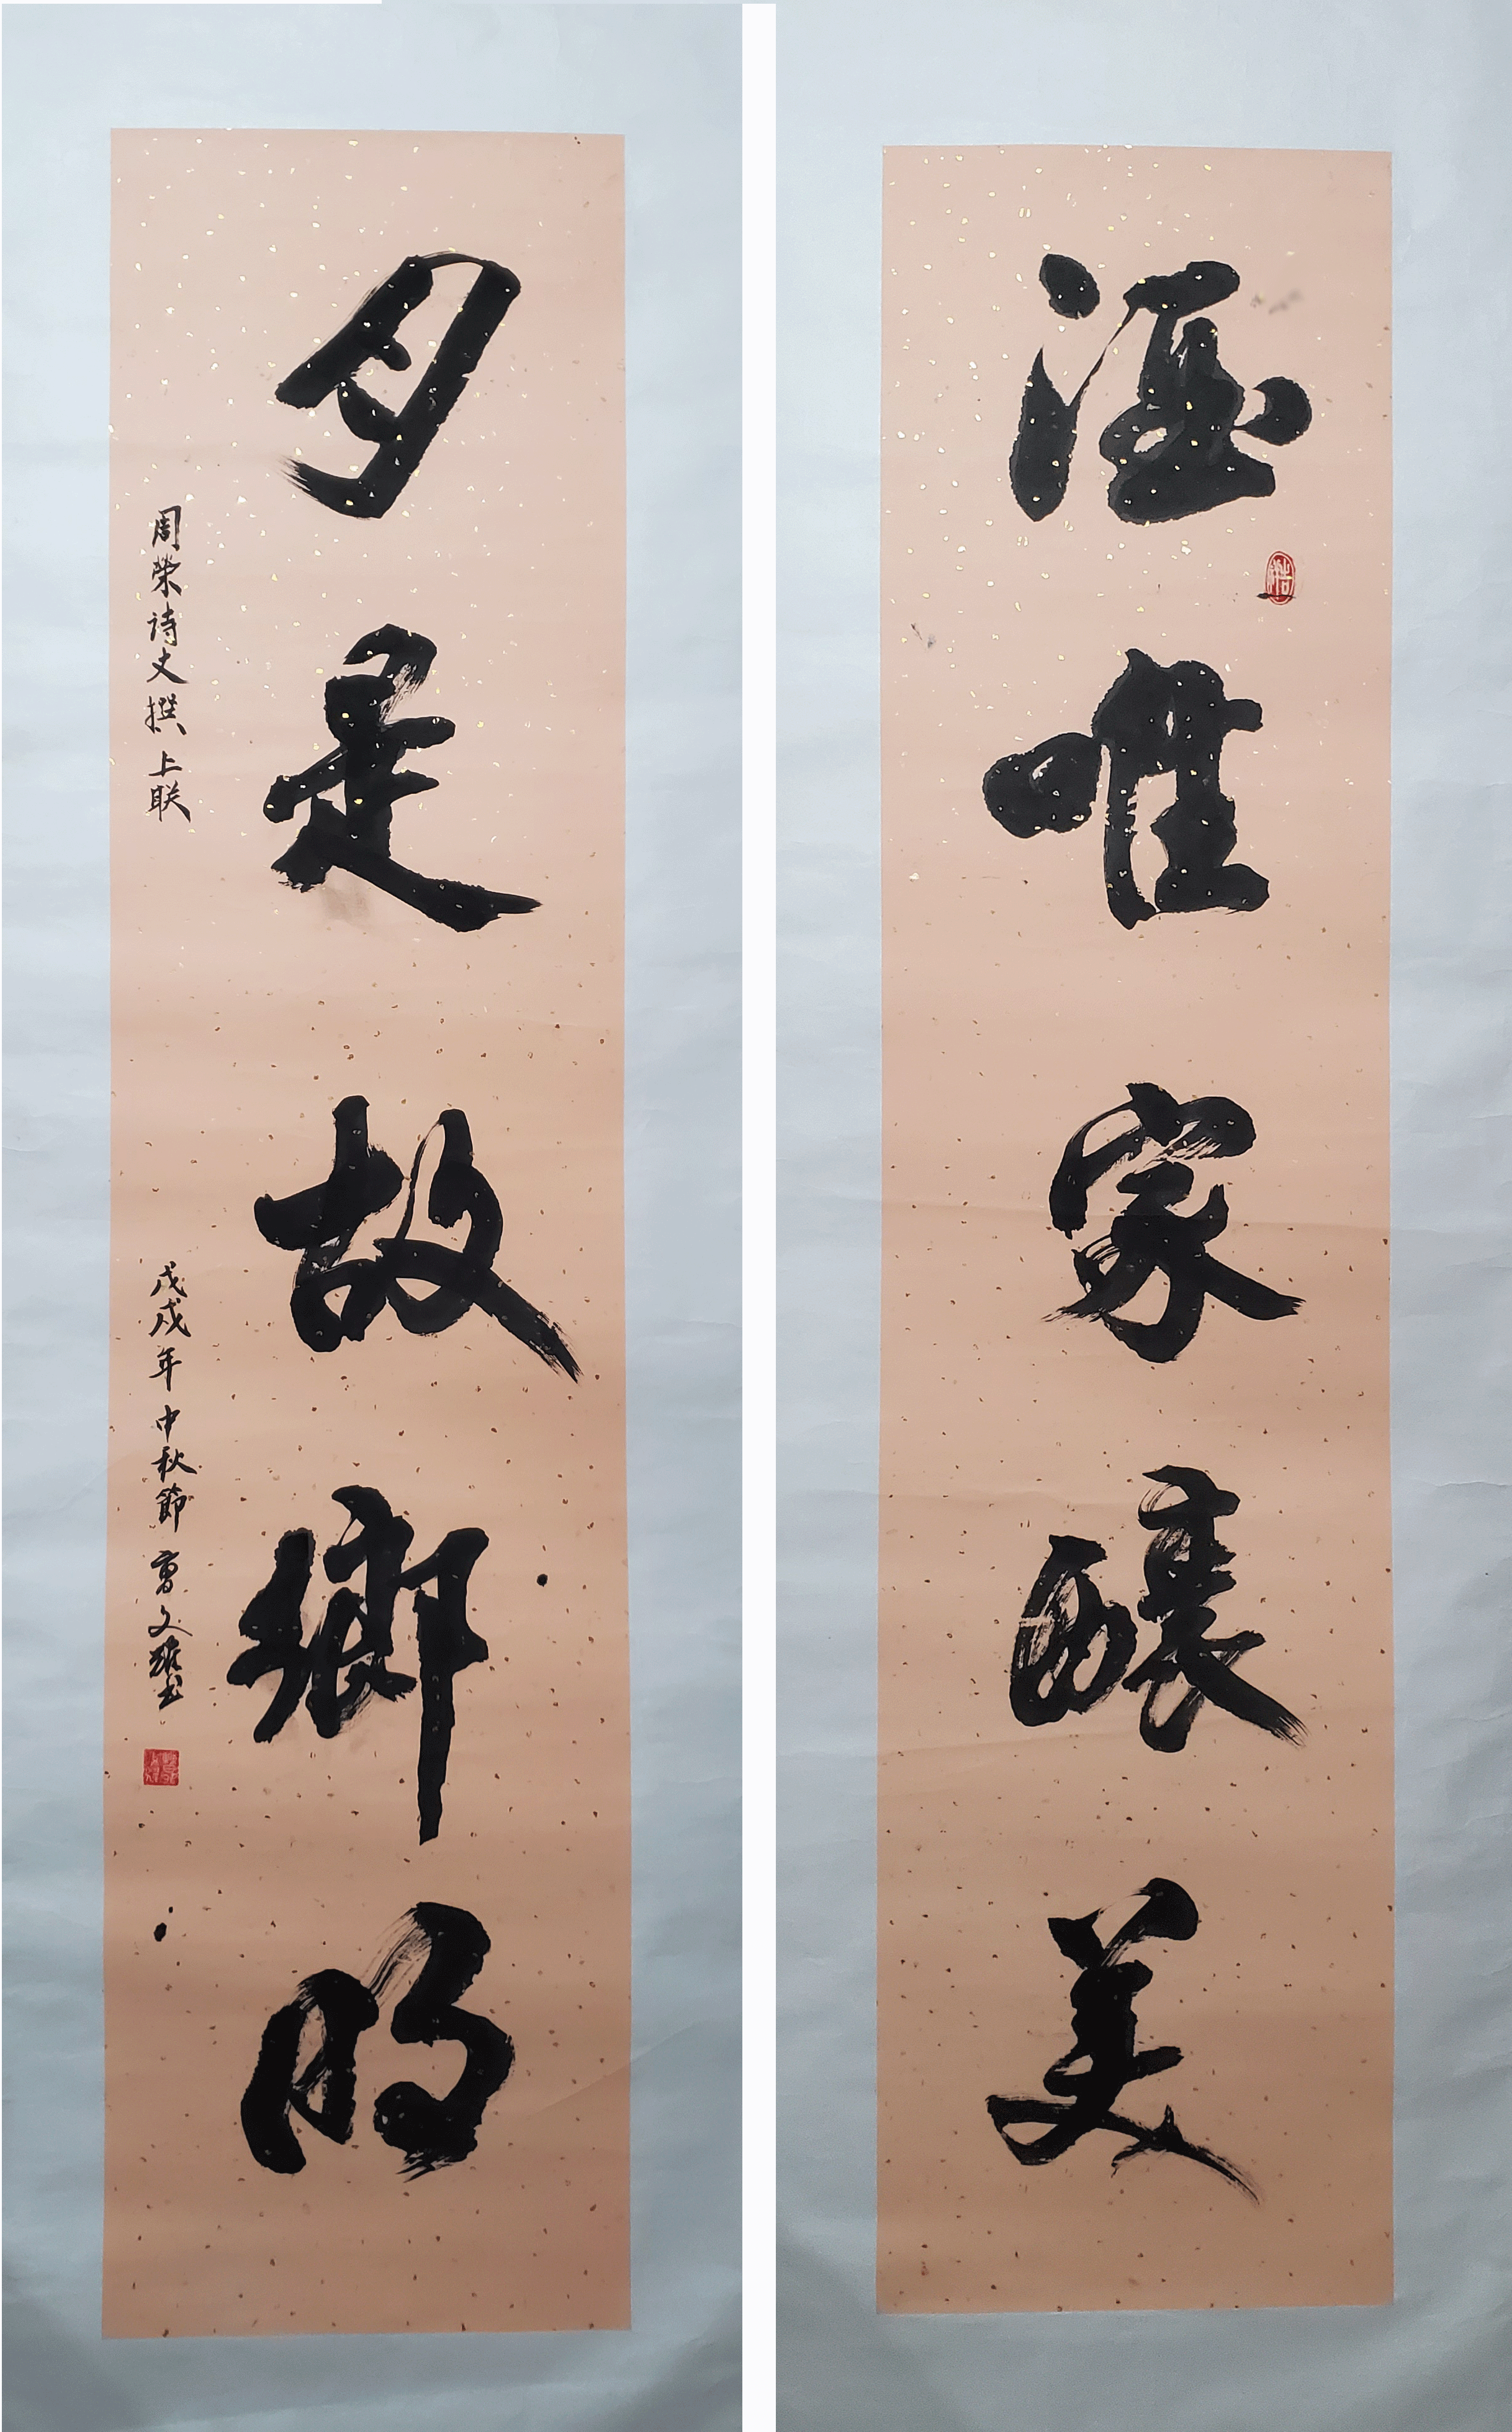 酒唯家釀美
月是故鄉明
周荣诗文撰上联
戊戌年中秋節曹文